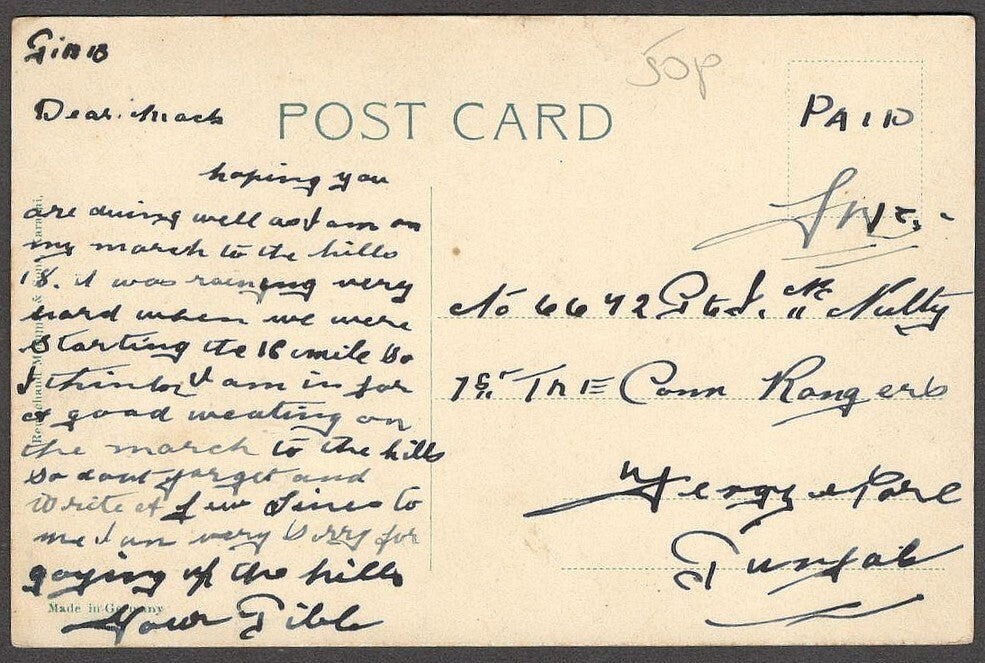 Gibb
50p
Dear Mack
POST CARD
PAID
hoping you
are duing well as I am on
my march to the hills
18. it was raining very
hard when we were
Starting the 16 mile so
I think I am in for
a good weating on
the march to the hills
so dont forget and
write a few lines to
me I am very sorry for
goying up the hills
Your Gibb
Made in Germany
No 6642 Pte J. Mc Nulty
1st The Conn Rangers
Ferozepore
Punjab